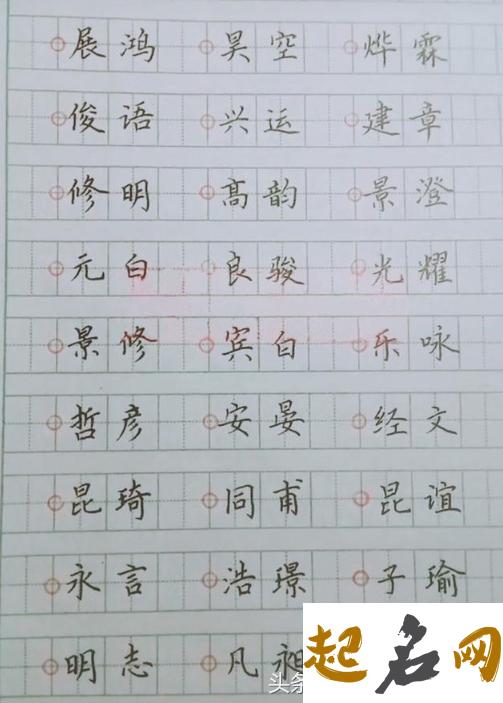 展鸿 昊空 烨霖
俊语 兴运 建章
修明 高韵 景澄
元白 良骏 光耀
景修 宾白 乐咏
哲彦 安晏 经文
昆琦 同甫 昆谊
永言 浩璟 子瑜
明志 凡
头条
起名网